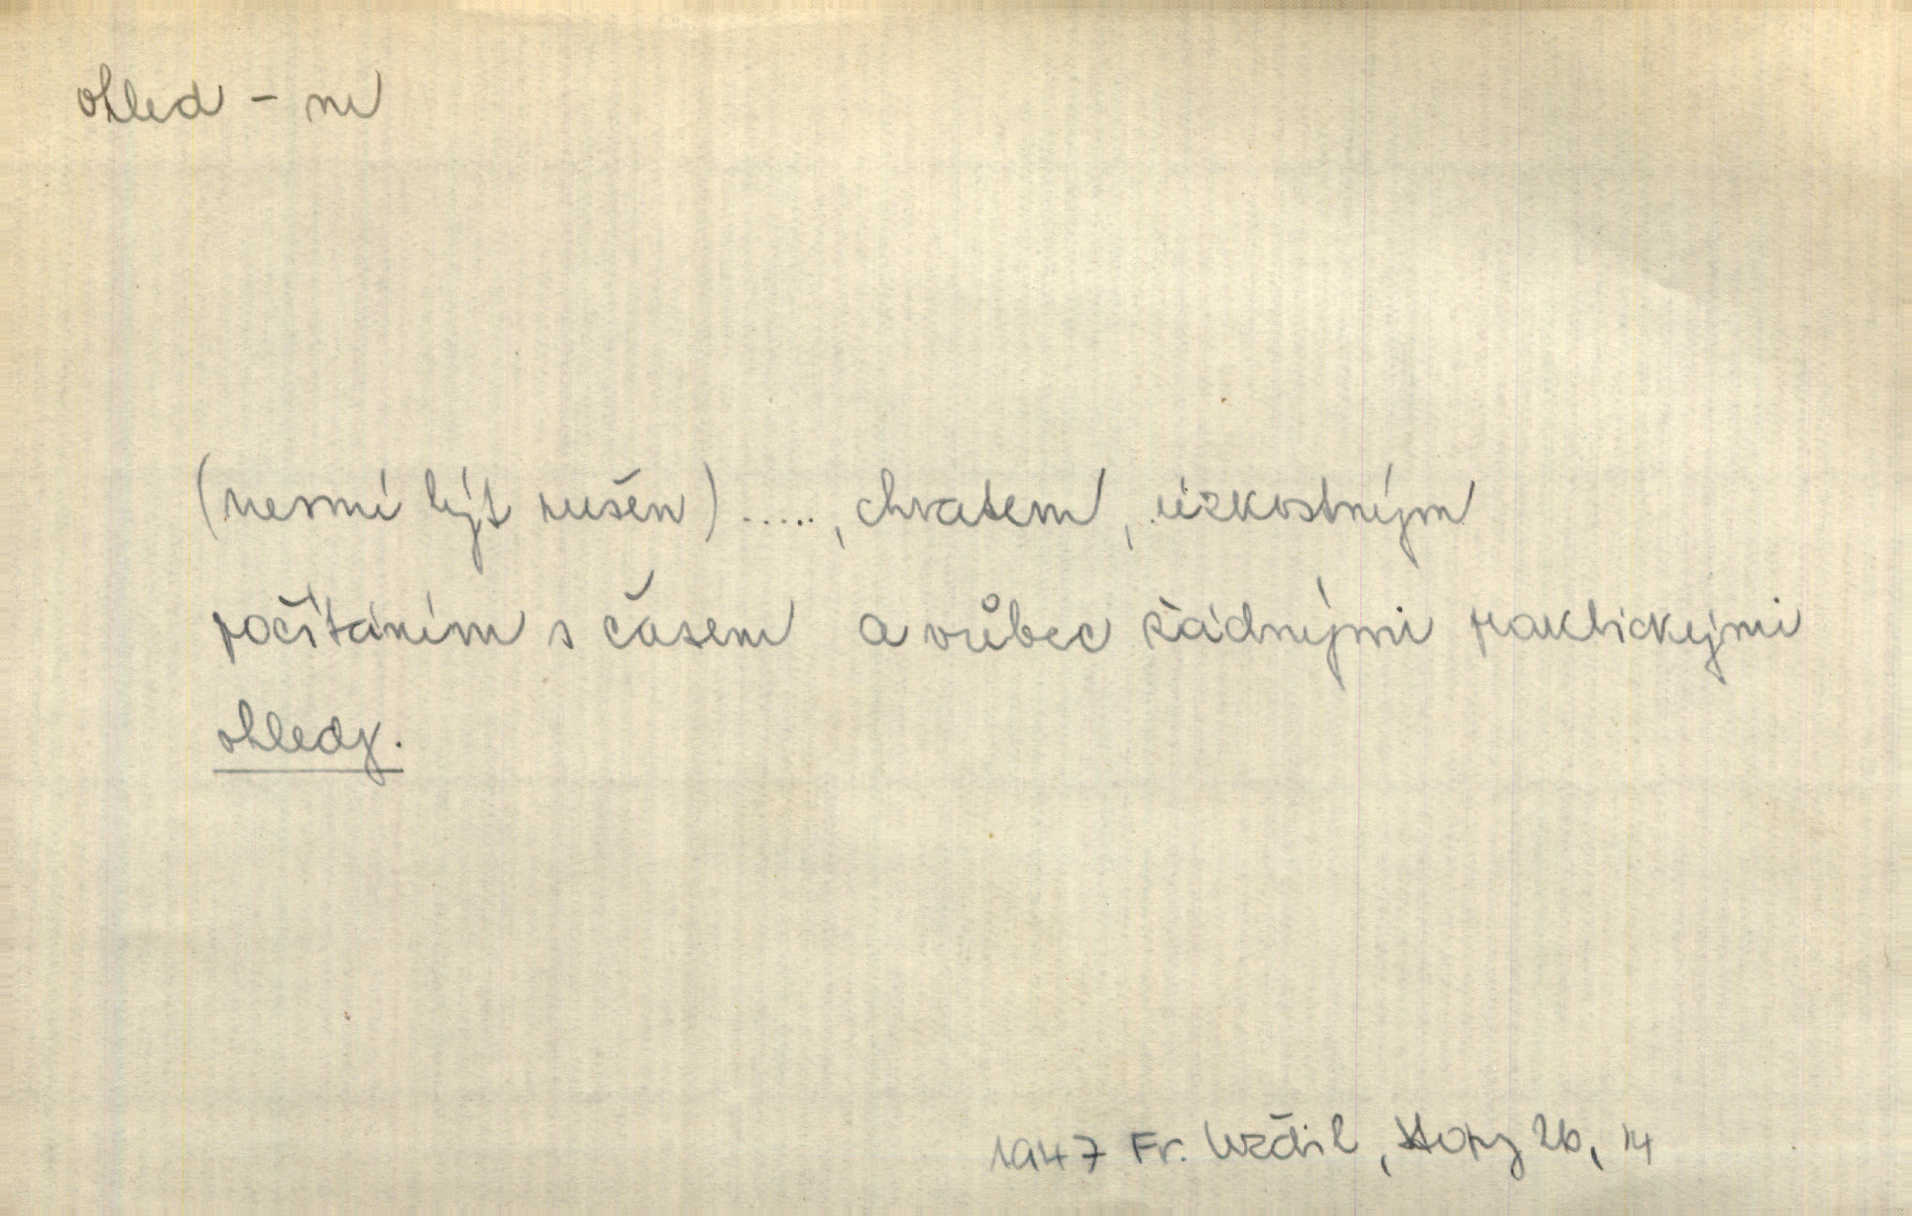 ohled - m
(nesmí být rušen) ....., chvatem, úzkostným
počítáním s časem a vůbec žádnými praktickými
ohledy.
1947 Fr. 26, 14